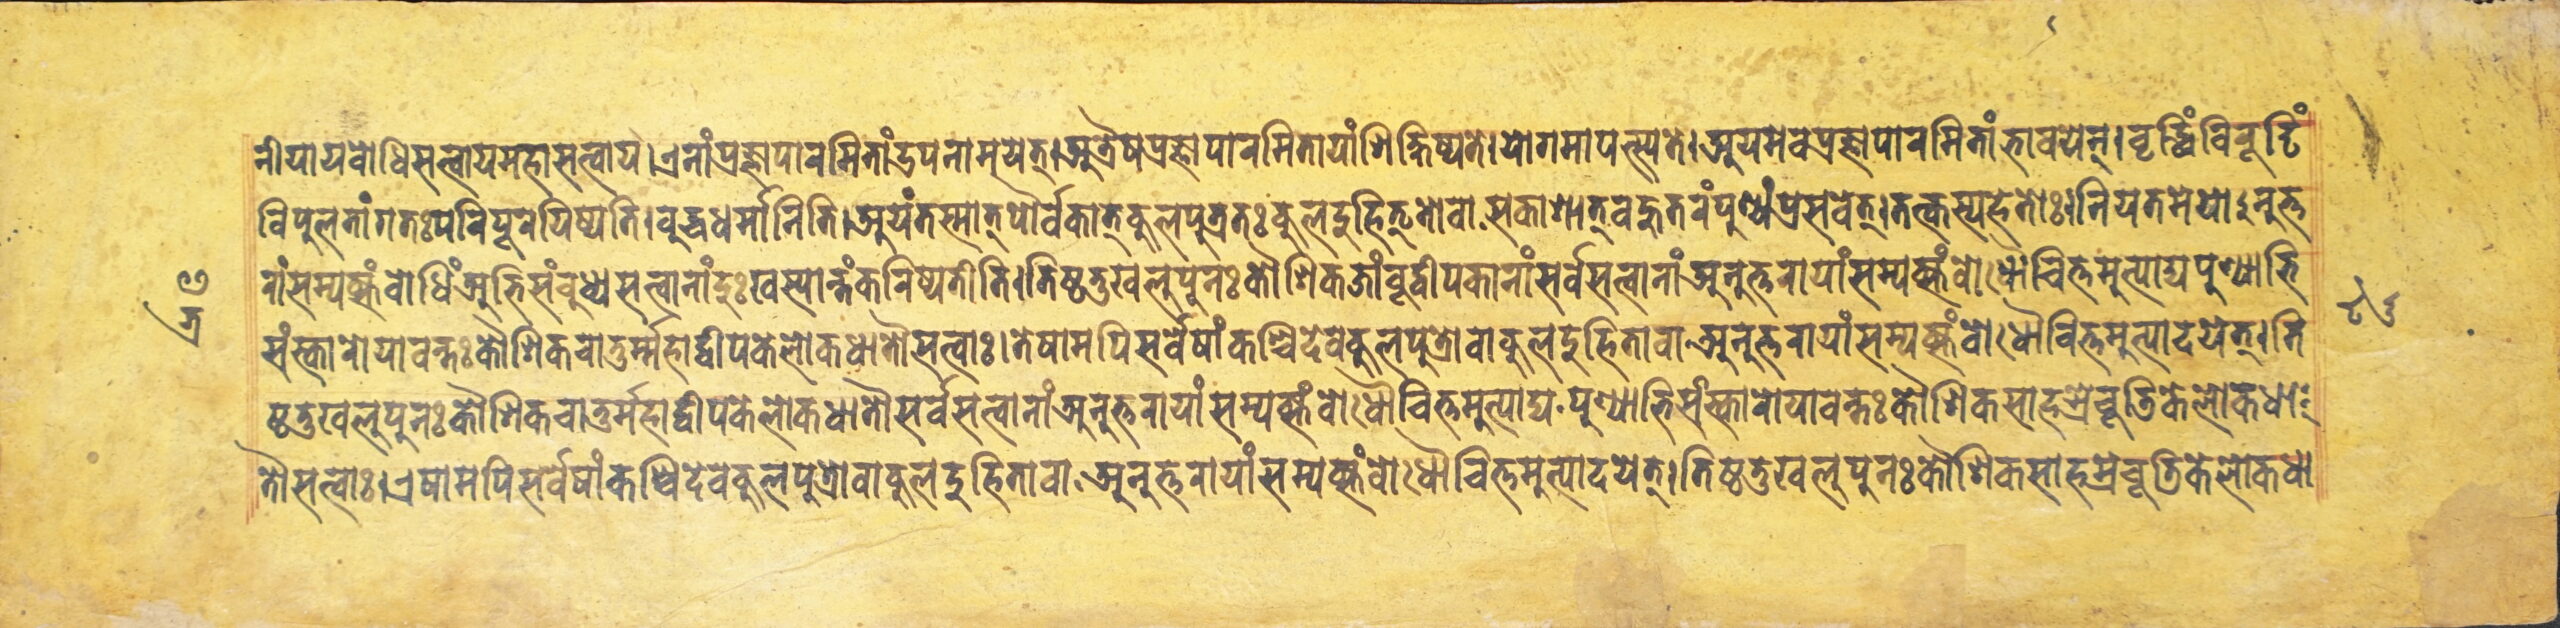 नीयायवोधिसत्वायमहासत्वाय।एनांप्रज्ञापारमितांउपनामयेत्।अत्रैषप्रज्ञापारमितायांशिक्षिष्यते।योगमापत्स्यते।अयमेवप्रज्ञापारमितांभावयेन्।वृद्धिंविरूढिं
विपुलतांगतःपरिपूरयिष्यति।वुद्धधर्मानिति।अयंतस्मात्पौर्वकात्कुलपुत्रतःकुलदुहितृतोवासकाशात्वहुतरंपुण्यंप्रसवेत्।तत्कस्यहेतोः।नियतमेषोऽनुत्त
रांसम्यक्संवोधिंअभिसंवुध्यसत्वानांदुःखस्यान्तंकरिष्यतीति।तिष्ठतुखलुपुनःकौशिकजांवूद्वीपकानांसर्वसत्वानांअनुत्तरायांसम्यक्संवोधौचित्तमुत्पाद्यपुण्याभि
संस्कारोयावन्तःकौशिकचातुर्म्महाद्वीपकेलोकधातौसत्वाः।तेषामपिसर्वेषांकश्चिदेवकुलपुत्रोवाकुलदुहितावाअनुत्तरायांसम्यक्संवोधौचित्तमुत्पादयेत्।ति
ष्ठतुखलुपुनःकौशिकचातुर्महाद्वीपकेलोकधातौसर्वसत्वानांअनुत्तरायांसम्यक्संवोधौचित्तमुत्पाद्यपुण्याभिसंस्कारोयावन्तःकौशिकसाहस्रेचूडिकेलोकधा
तौसत्वाः।एषामपिसर्वेषांकश्चिदेवकुलपुत्रोवाकुलदुहितावाअनुत्तरायांसम्यक्संवोधौचित्तमुत्पादयेत्।तिष्ठतुखलुपुनःकौशिकसाहस्रेचूडिकेलोकधा